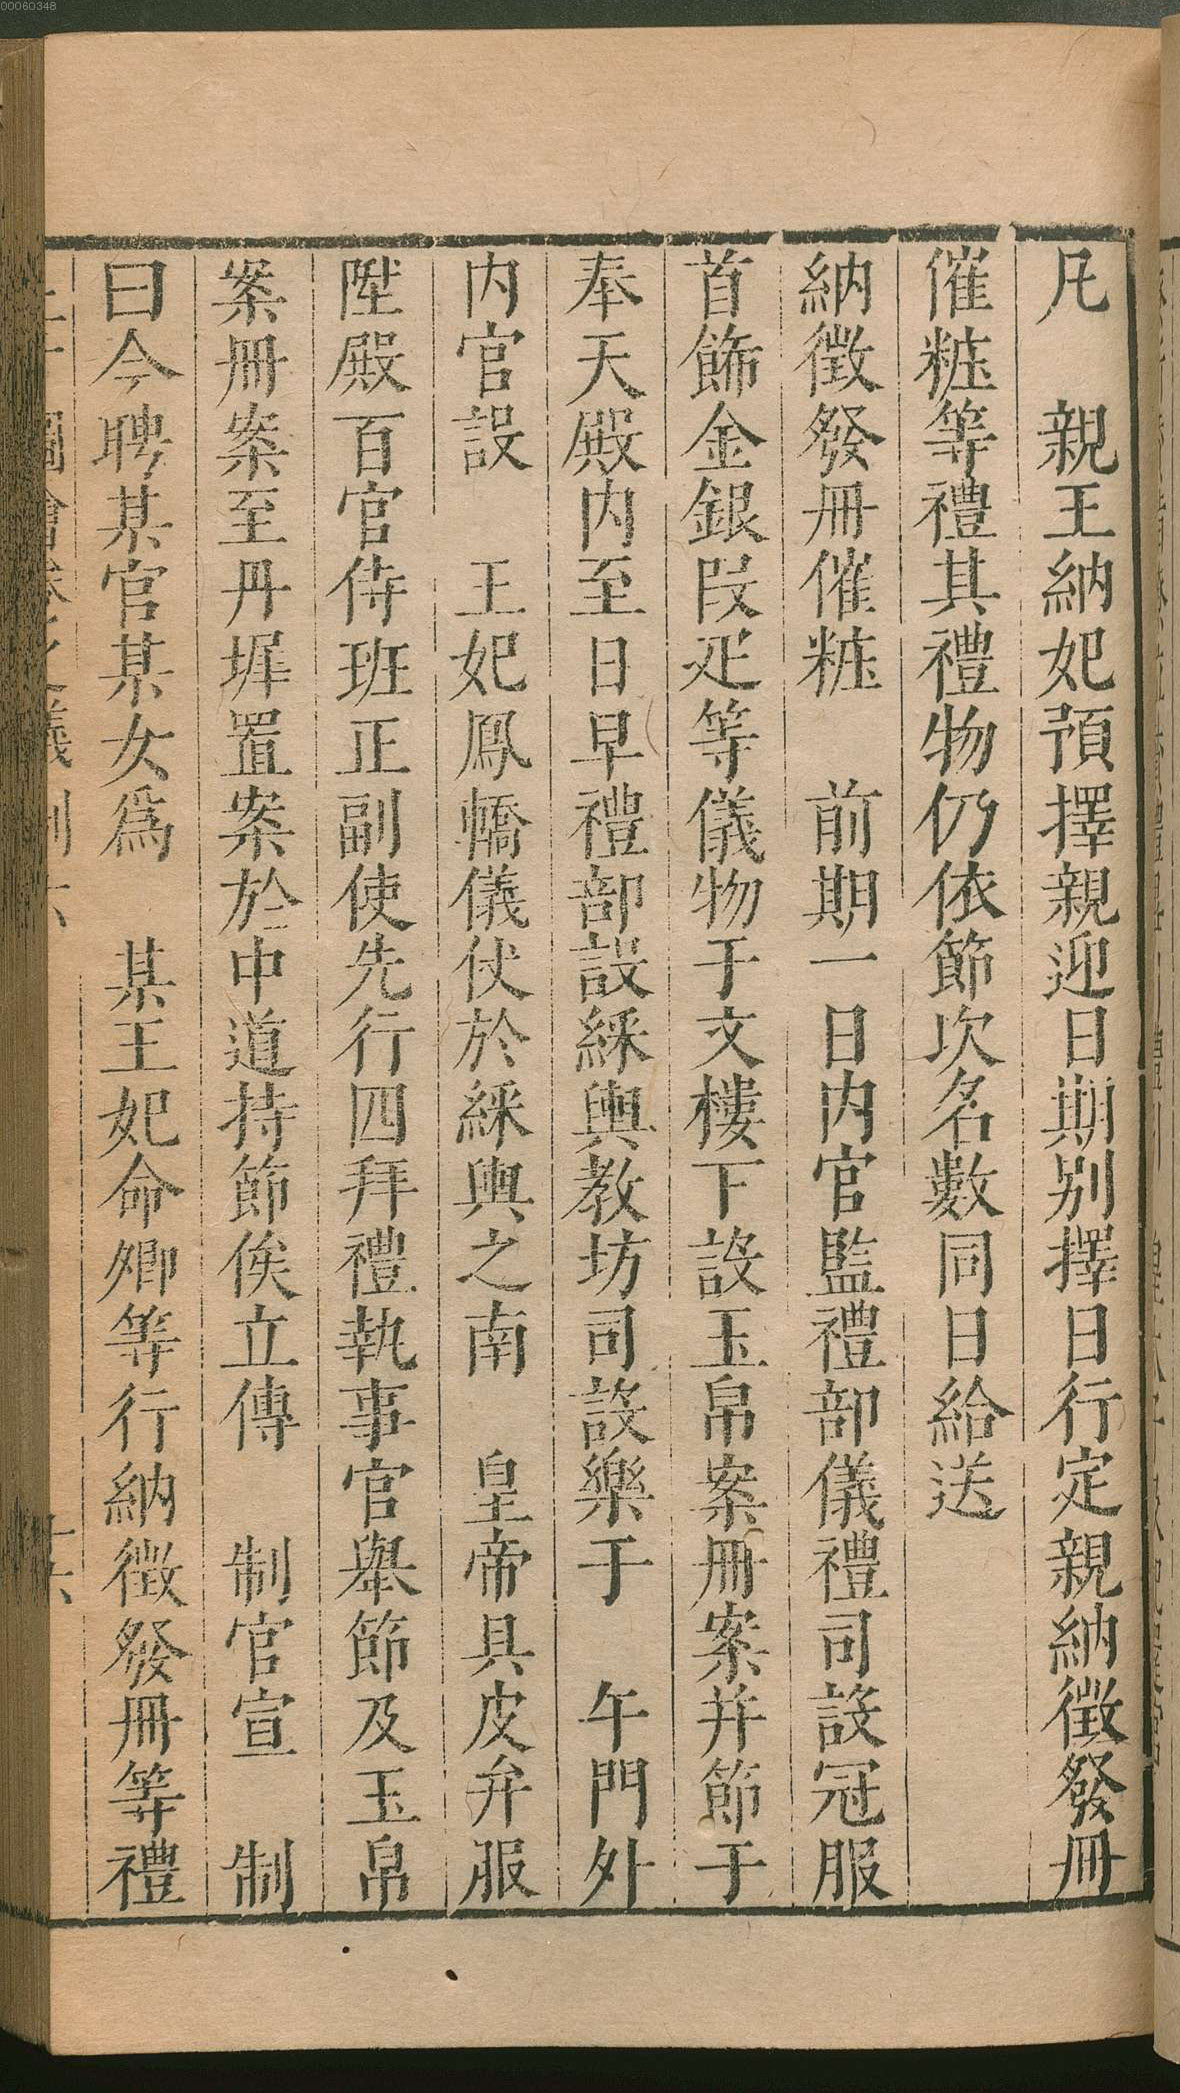 00060348
凡　親王納妃預擇親迎日期别擇日行定親納徵發冊
催粧等禮其禮物仍依節次名數同日給送
納徵發冊催粧　前期一日内官監禮部儀禮司設冠服
首飾金銀段疋等儀物于文樓下設玉帛案冊案并節于
奉天殿内至日早禮部設綵輿教坊司設樂于　午門外
内官設　王妃鳳轎儀仗於綵輿之南　皇帝具皮弁服
陞殿百官侍班正副使先行四拜禮執事官舉節及玉帛
案冊案至丹墀置案於中道持節俟立傳　制官宣　制
曰今聘某官某女爲　某王妃命卿等行納徵發冊等禮